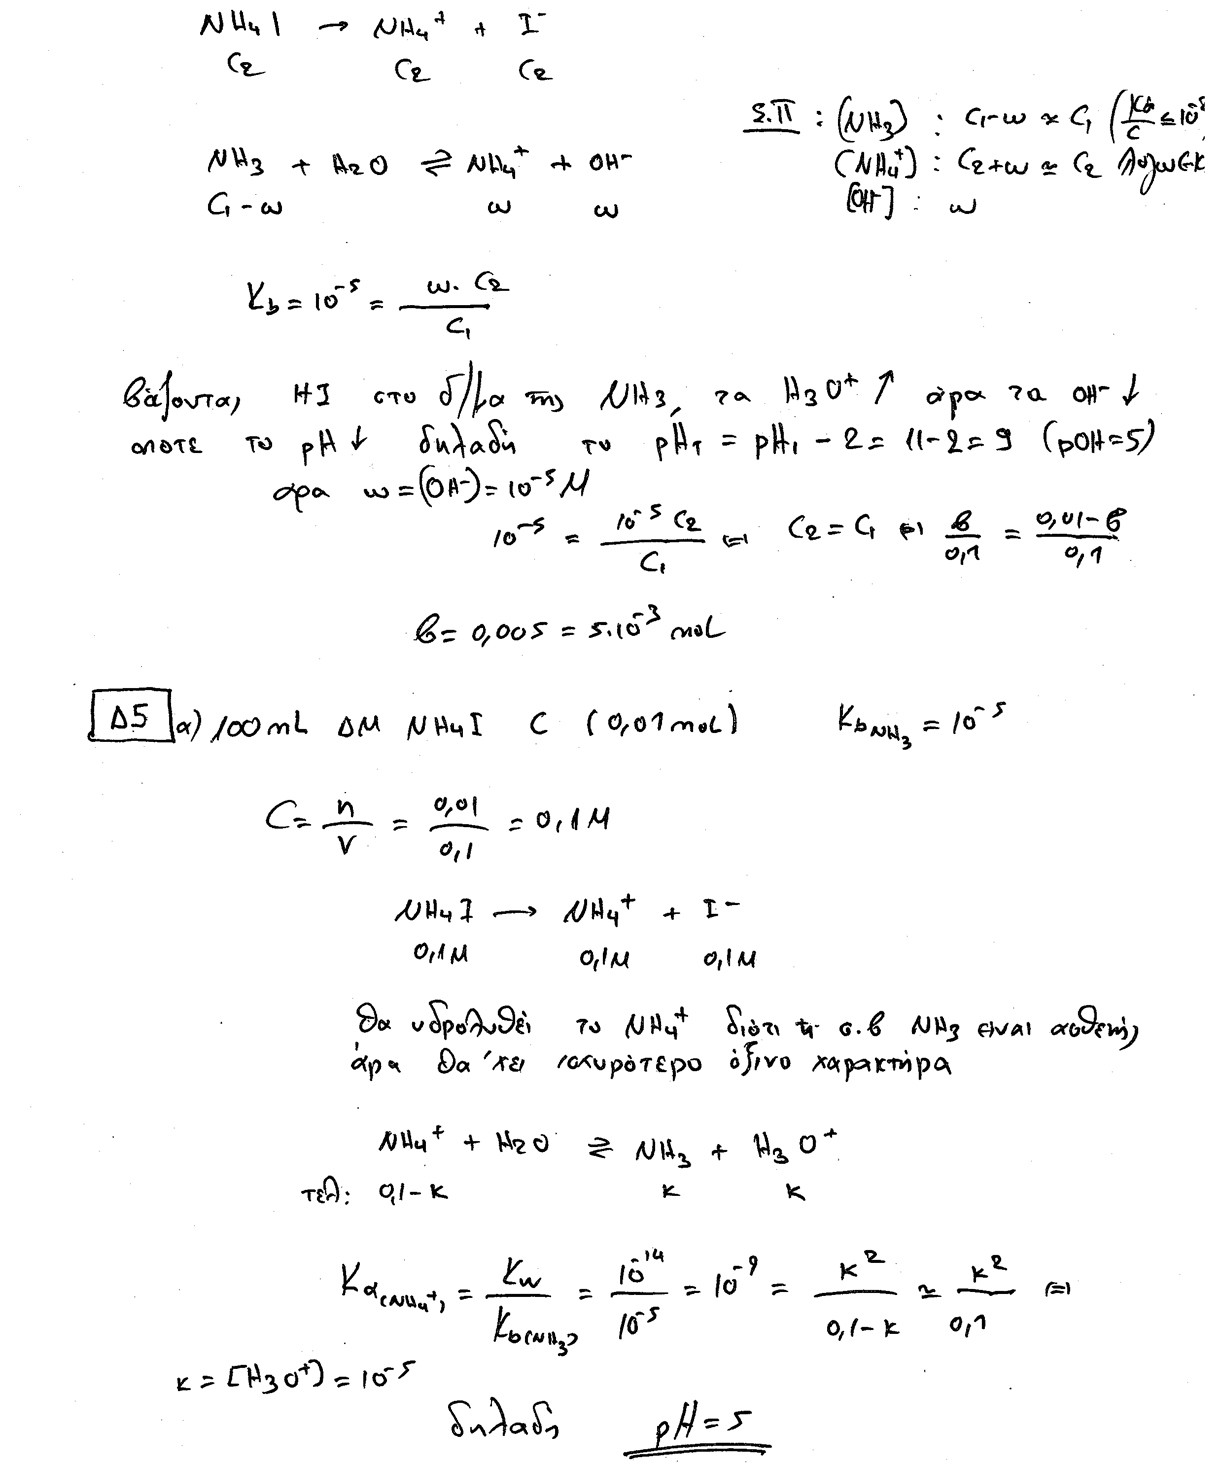 NH₄I → NH₄⁺ + I⁻
C₂ C₂ C₂
Ε.Π : (NH₃) : C₁-ω ≃ C₁ (Kb/C ≤ 10⁻²
NH₃ + H₂O ⇌ NH₄⁺ + OH⁻ (NH₄⁺) : C₂+ω ≃ C₂ λόγω Ε.Κ
C₁-ω ω ω [OH⁻] : ω
Kb = 10⁻⁵ = ω·C₂/C₁
βάζοντας HI στο δ/μα της NH₃, τα H₃O⁺ ↑ άρα τα OH⁻ ↓
οποτε το pH ↓ δηλαδή το pHτ = pH₁ - 2 = 11-2 = 9 (pOH=5)
άρα ω = (OH⁻) = 10⁻⁵ M
10⁻⁵ = 10⁻⁵ C₂/C₁ ⇔ C₂ = C₁ ⇔ β/0,1 = 0,01-β/0,1
β = 0,005 = 5.10⁻³ mol
Δ5 α) 100 mL ΔΜ NH₄I C (0,01 mol) Kb NH₃ = 10⁻⁵
C = n/V = 0,01/0,1 = 0,1 M
NH₄I → NH₄⁺ + I⁻
0,1M 0,1M 0,1M
θα υδρολυθεί το NH₄⁺ διότι η σ.β NH₃ είναι ασθενής
άρα θα 'χει ισχυρότερο όξινο χαρακτήρα
NH₄⁺ + H₂O ⇌ NH₃ + H₃O⁺
τελ: 0,1-κ κ κ
Kα(NH₄⁺) = Kw/Kb(NH₃) = 10⁻¹⁴/10⁻⁵ = 10⁻⁹ = κ²/0,1-κ ≃ κ²/0,1 ⇔
κ = [H₃O⁺] = 10⁻⁵
δηλαδή pH = 5